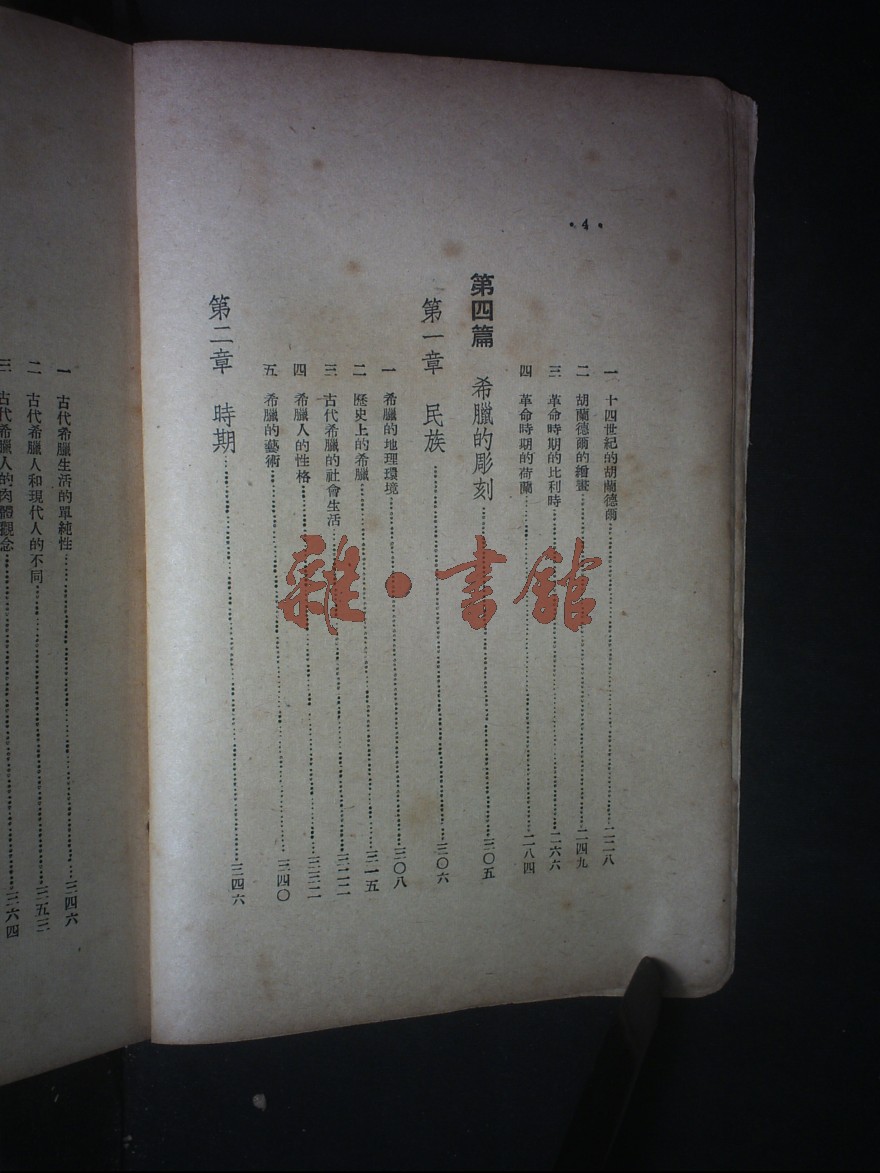 • 4 •
一 十四世紀的胡蘭德爾……二二八
二 胡蘭德爾的繪畫……二四九
三 革命時期的比利時……二六六
四 革命時期的荷蘭……二八四
第四篇 希臘的彫刻……三〇五
第一章 民族……三〇六
一 希臘的地理環境……三〇八
二 歷史上的希臘……三一五
三 古代希臘的社會生活……三二二
四 希臘人的性格……三三二
五 希臘的藝術……三四〇
第二章 時期……三四六
一 古代希臘生活的單純性……三四六
二 古代希臘人和現代人的不同……三五三
三 古代希臘人的肉體觀念……三六四
雜·書館